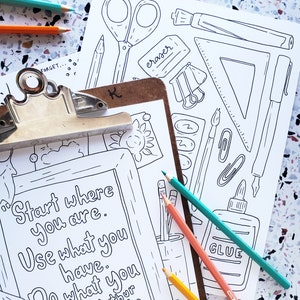 eraser
K
"Start where
you are.
Use what you
have.
Do what you
GLUE